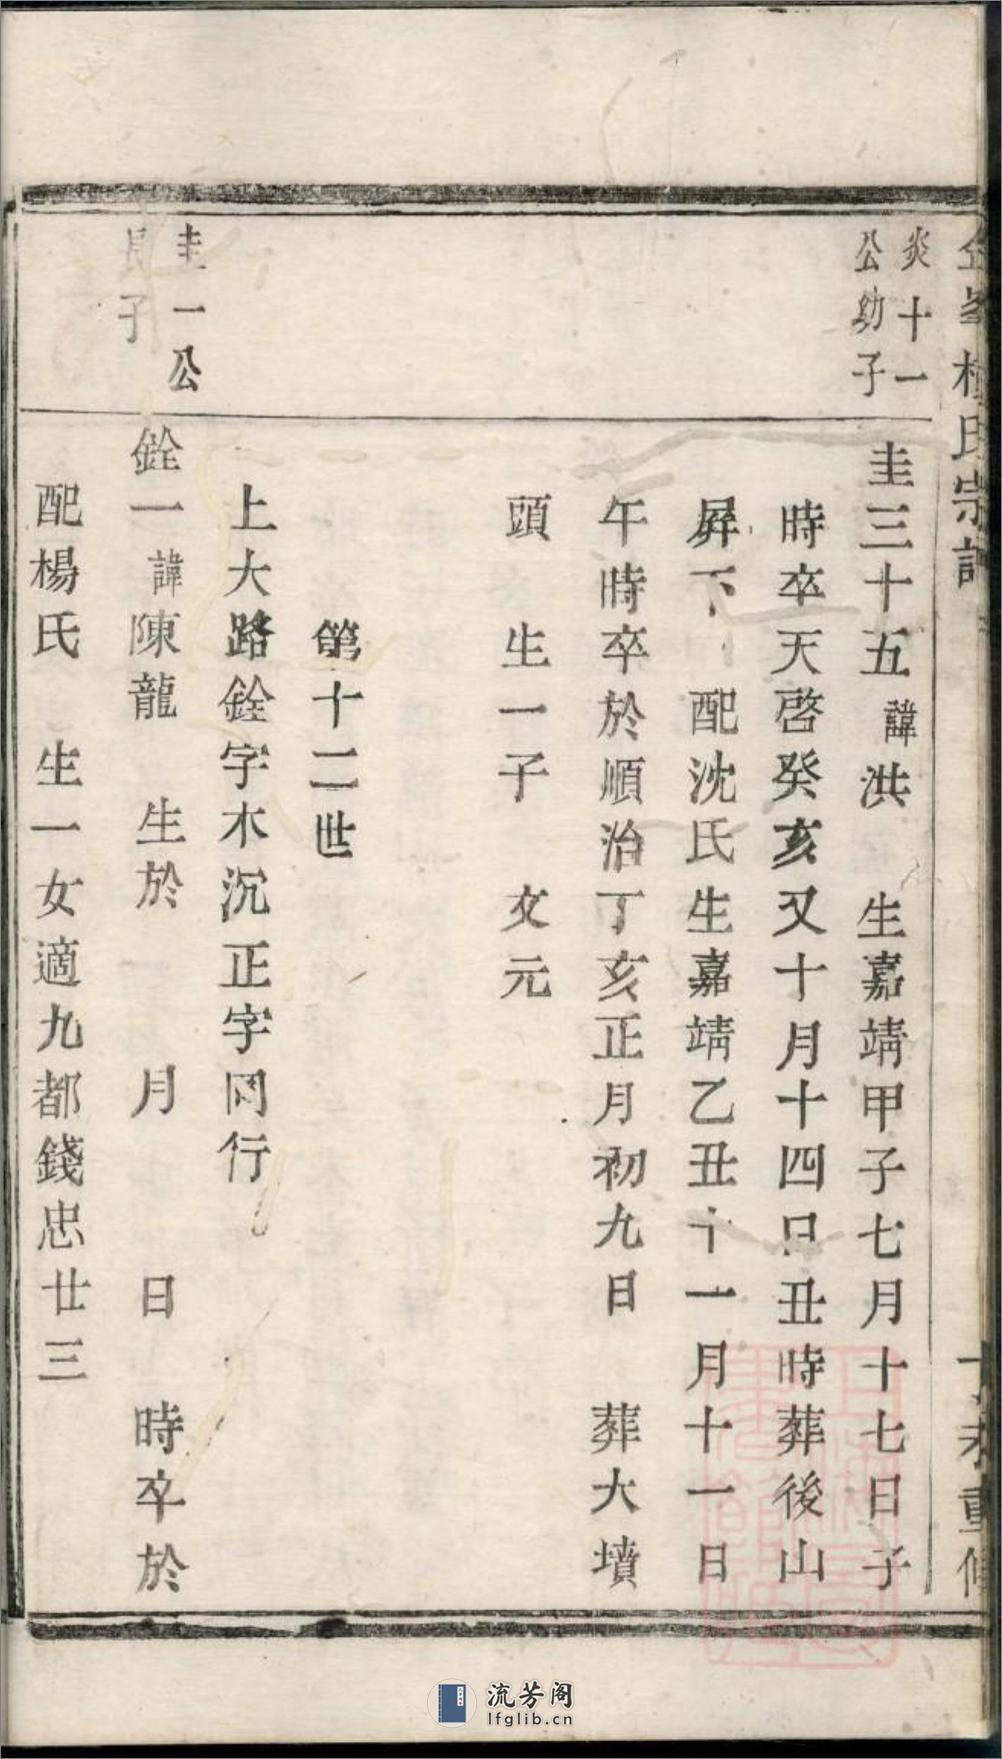 炎十一
公助子
圭三十五諱洪　生嘉靖甲子七月十七日子
時卒天啓癸亥又十月十四日丑時葬後山
屏下　配沈氏生嘉靖乙丑十一月十一日
午時卒於順治丁亥正月初九日　葬大墳
頭　生一子　文元
第十二世
上大路銓字木沉正字同行
圭一公
子
銓一諱陳龍　生於　月　日　時卒於
配楊氏　生一女適九都錢忠廿三
流芳阁
lfglib.cn